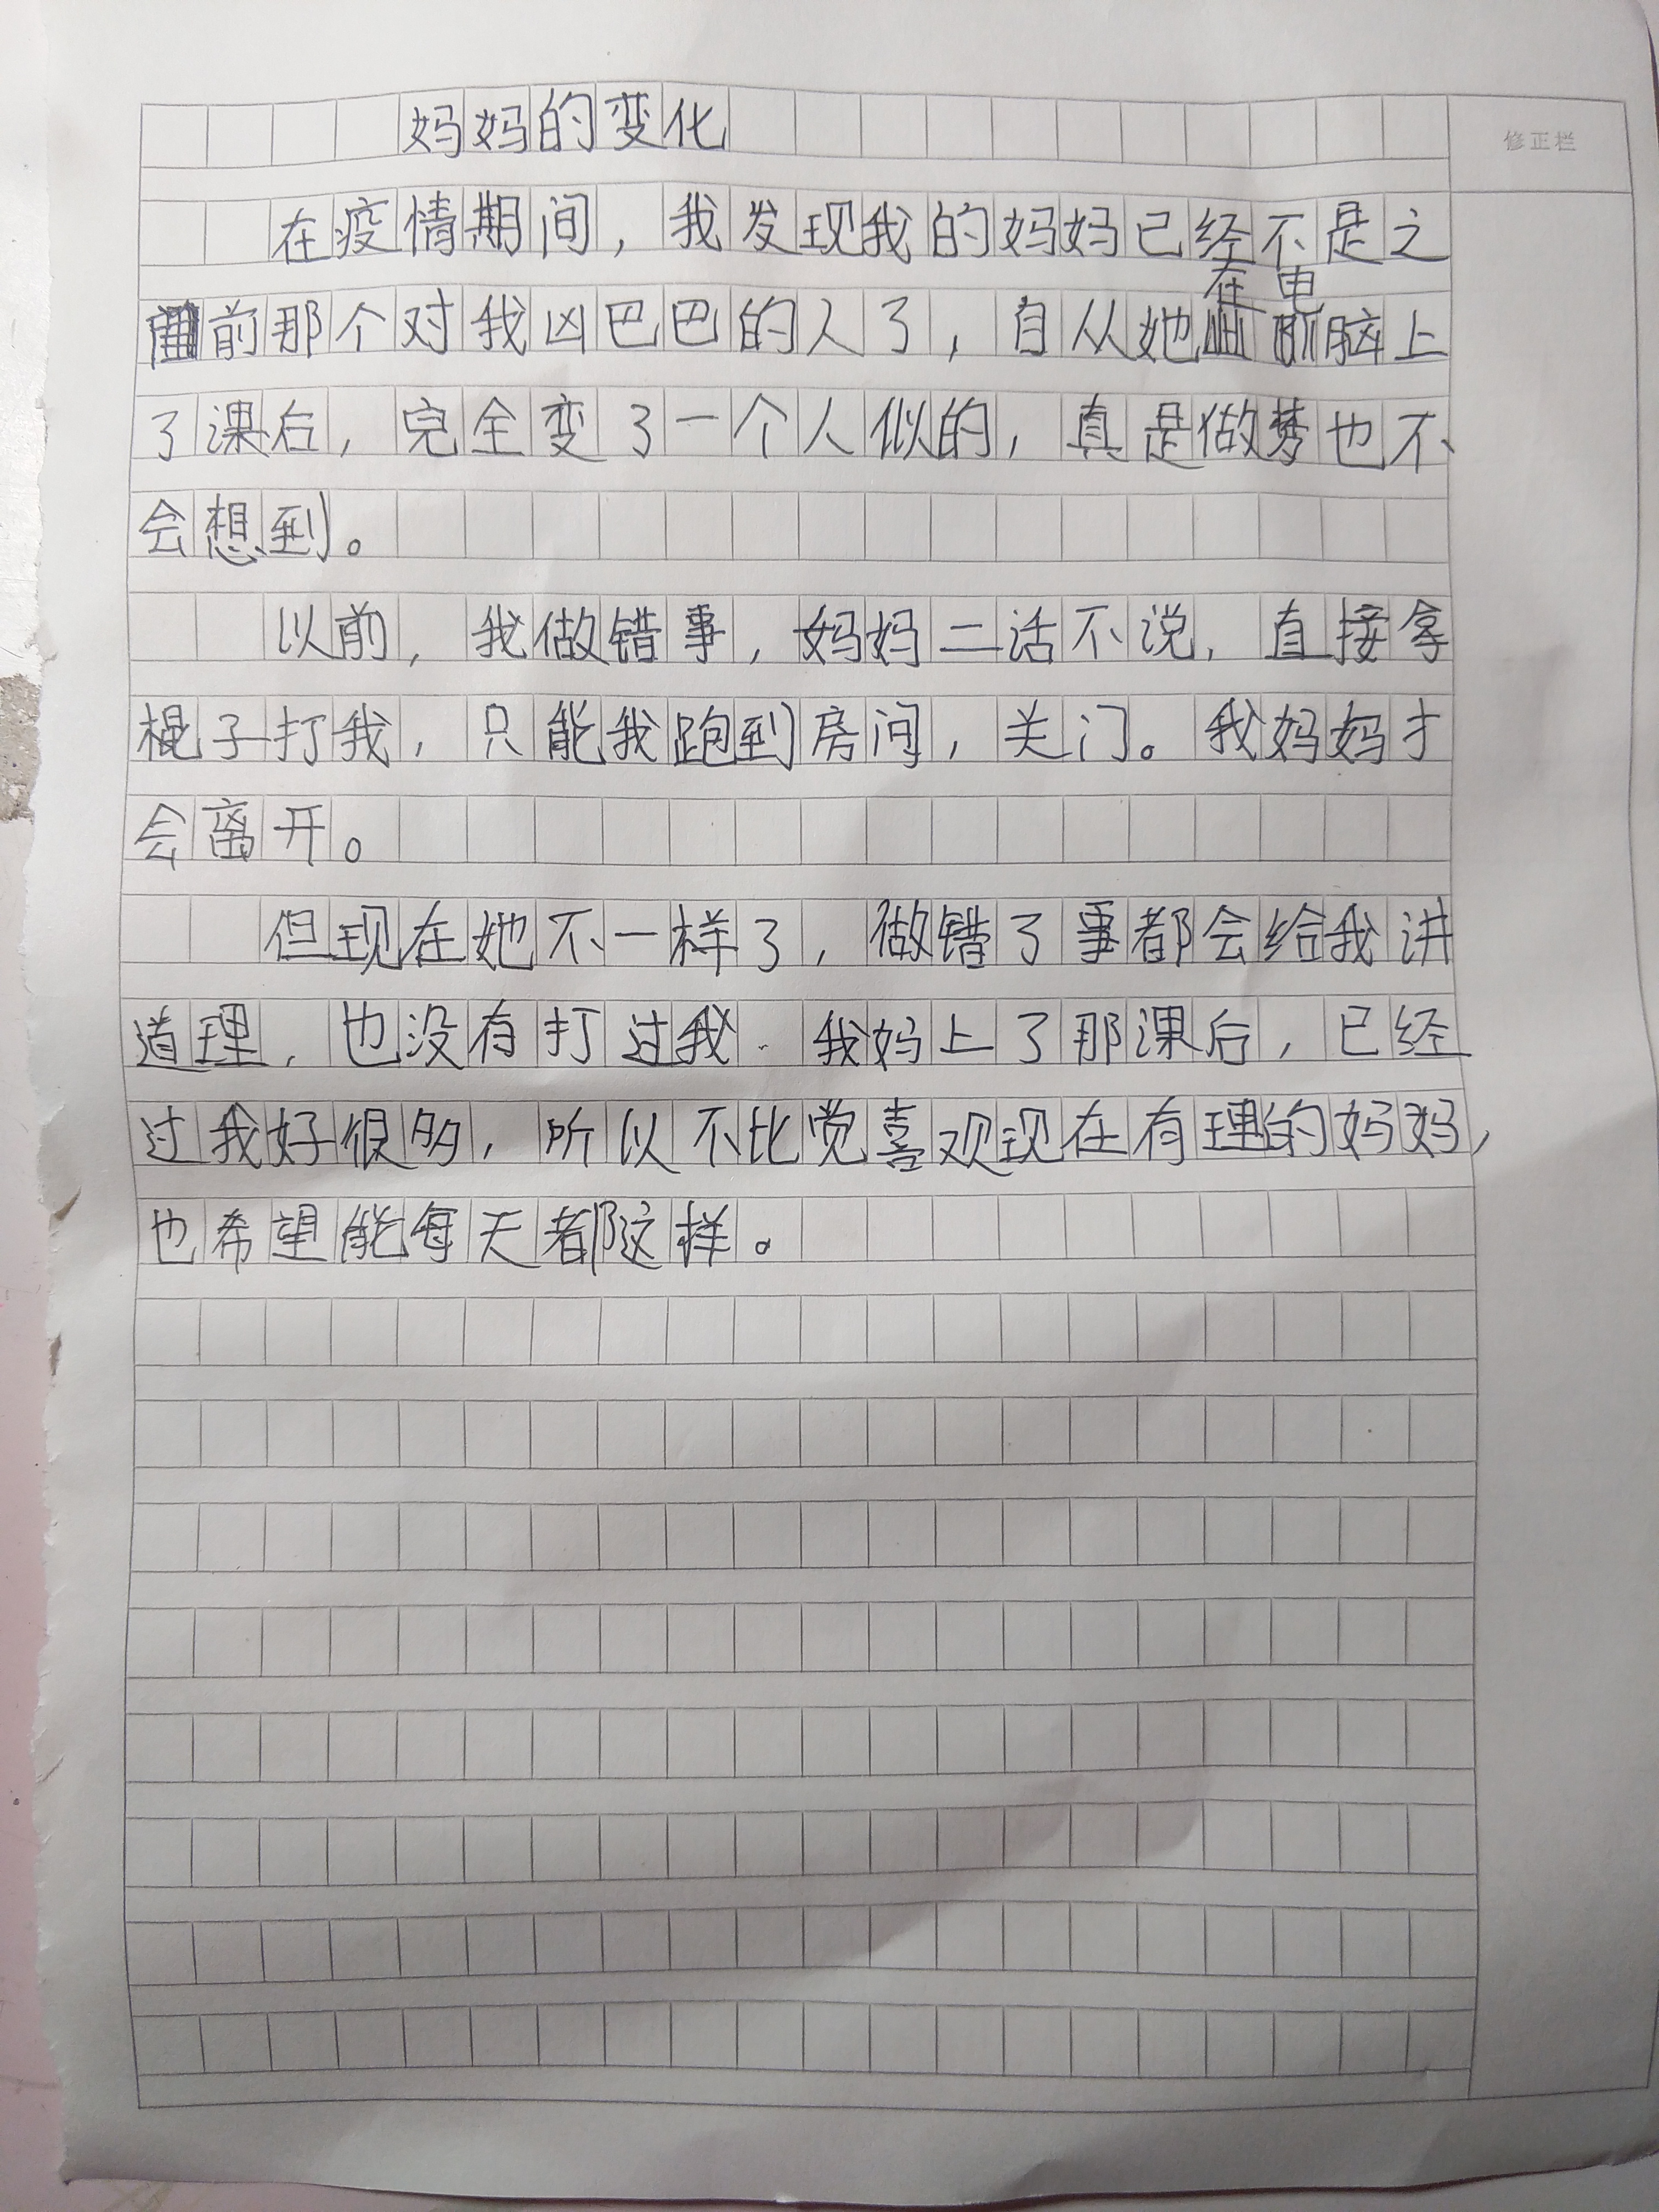 妈妈的变化
修正栏
在疫情期间，我发现我的妈妈已经不是之
前那个对我凶巴巴的人了，自从她在电脑上
了课后，完全变了一个人似的，真是做梦也不
会想到。
以前，我做错事，妈妈二话不说，直接拿
棍子打我，只能我跑到房间，关门。我妈妈才
会离开。
但现在她不一样了，做错了事都会给我讲
道理，也没有打过我．我妈上了那课后，已经
过我好很多，所以不比觉喜观现在有理的妈妈，
也希望能每天都这样。